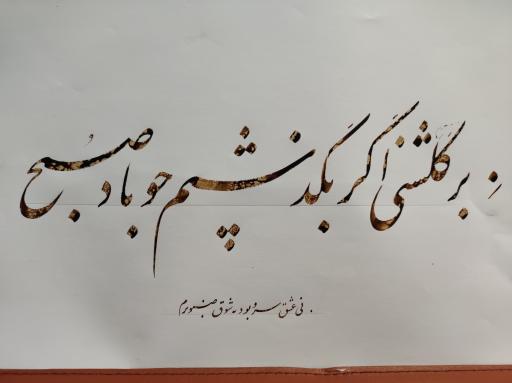 بر گلشنی اگر بگذشتم چو باد صبح
نی عشق سرو بود و نه شوق صنوبرم